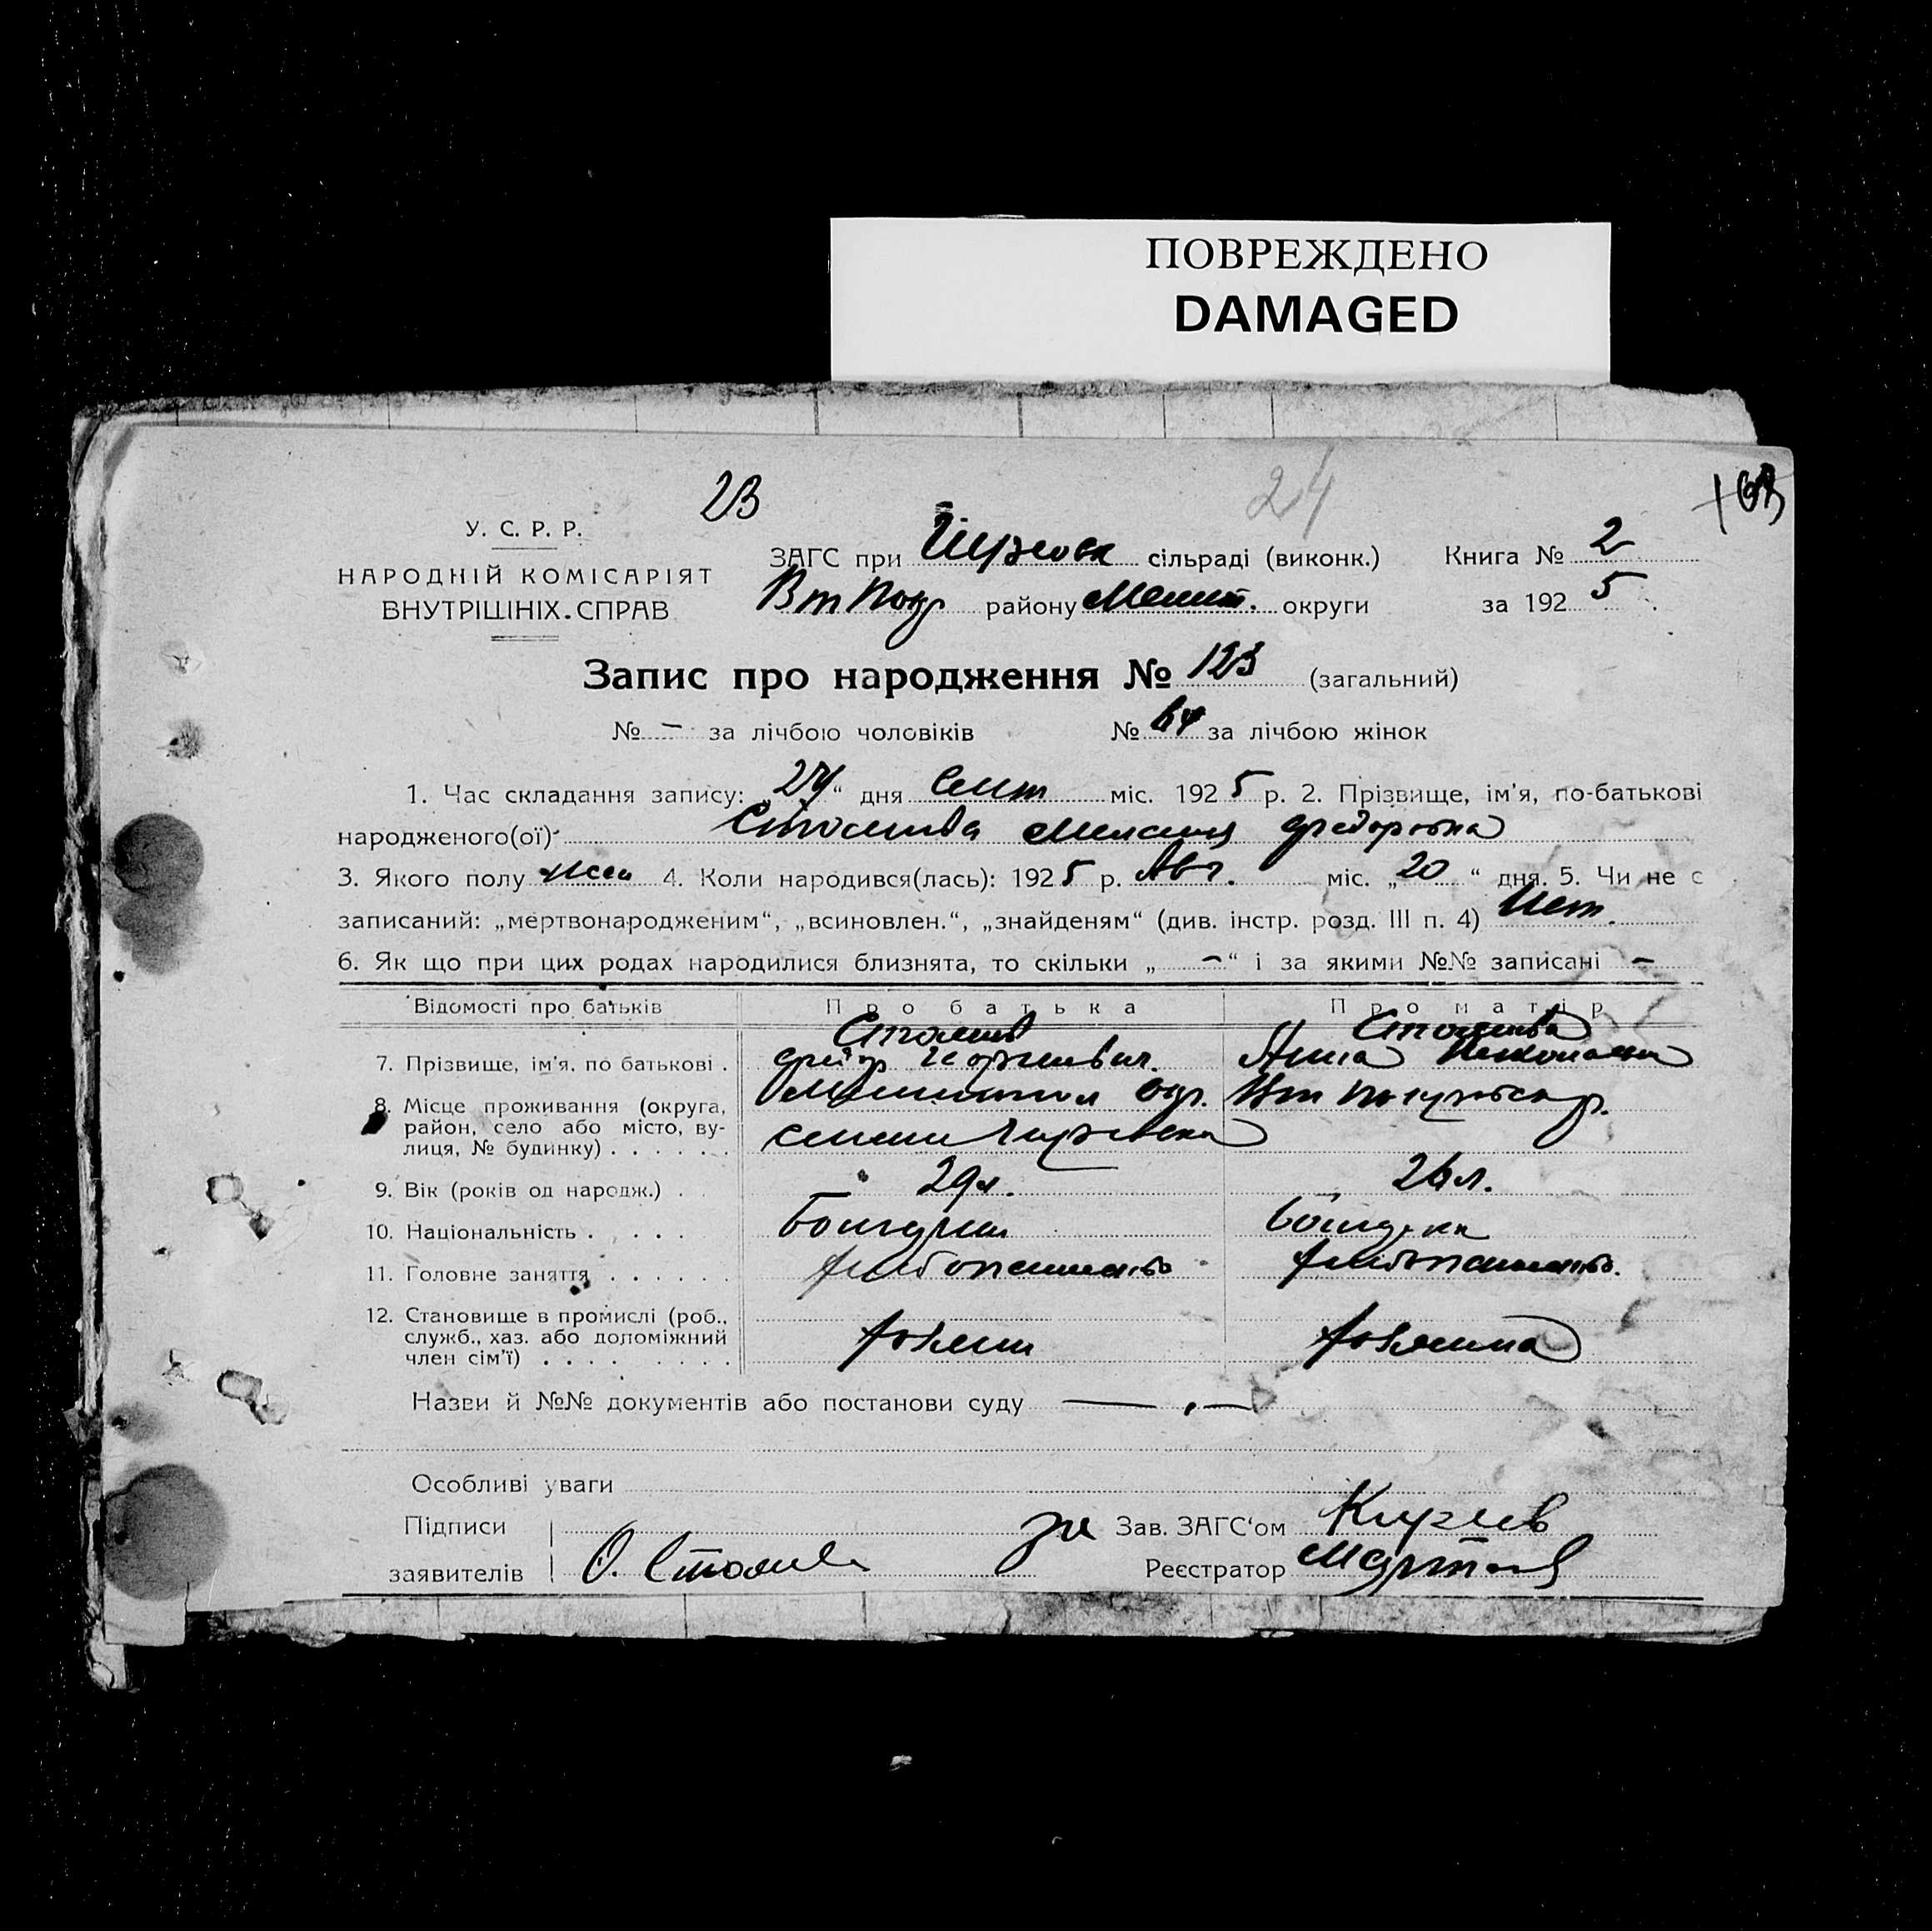 ПОВРЕЖДЕНО
DAMAGED
23
24
У. С. Р. Р.
НАРОДНІЙ КОМІСАРІЯТ
ВНУТРІШНІХ СПРАВ
ЗАГС при сільраді (виконк.) Книга № 2
району округи за 1925
Запис про народження № 123 (загальний)
№ – за лічбою чоловіків № 64 за лічбою жінок
1. Час складання запису: „24“ дня Сент міс. 1925 р. 2. Прізвище, ім'я, по-батькові
народженого(ої) Федоровна
3. Якого полу жен 4. Коли народився(лась): 1925 р. Авг. міс. „20“ дня. 5. Чи не є
записаний: „мертвонародженим“, „всиновлен.“, „знайденям“ (див. інстр. розд. III п. 4) Нет.
6. Як що при цих родах народилися близнята, то скільки „ – “ і за якими №№ записані –
Відомості про батьків Про батька Про матір
7. Прізвище, ім'я, по батькові . Анна Николаевна
8. Місце проживання (округа,
район, село або місто, ву-
лиця, № будинку) . . . . . .
9. Вік (років од народж.) . . 29 л. 26 л.
10. Національність . . . . .
11. Головне заняття . . . . . . хлебопашество хлебопашество.
12. Становище в промислі (роб.,
служб., хаз. або допоміжний
член сім'ї) . . . . . . . . . хозяин хозяина
Назви й №№ документів або постанови суду
Особливі уваги
Підписи за Зав. ЗАГС'ом
заявителів Реєстратор